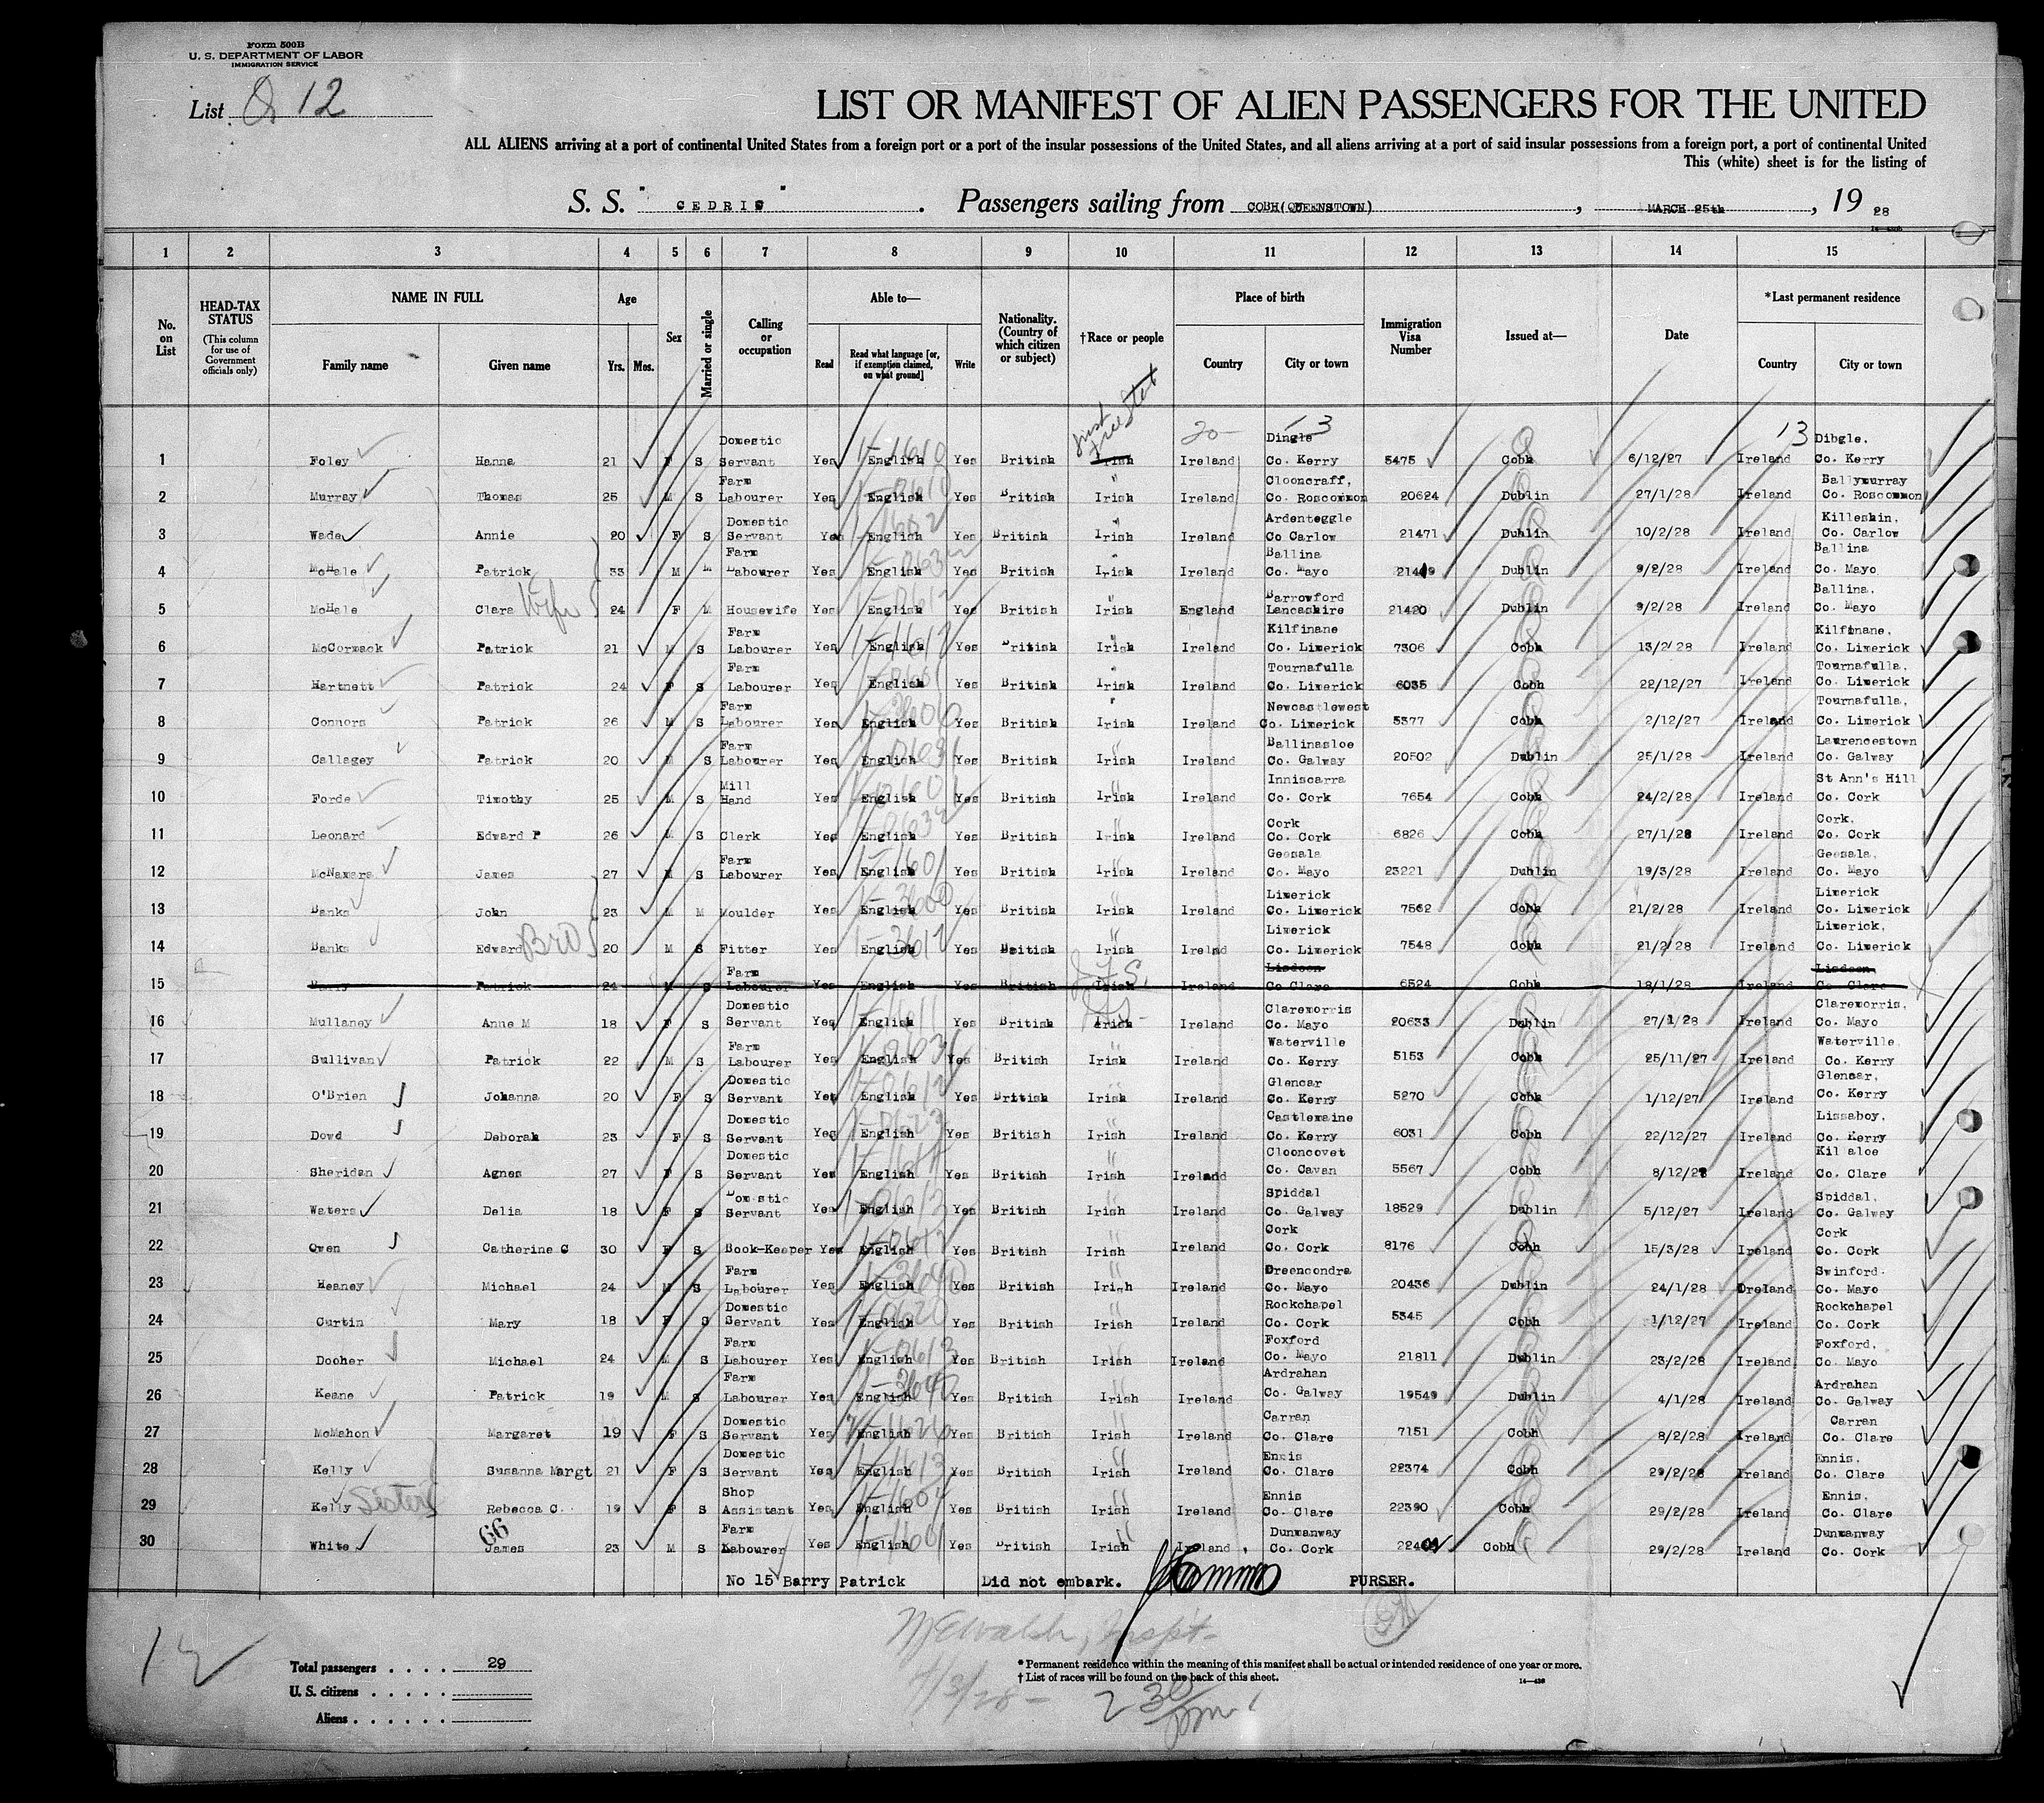 Form 500B
U. S. DEPARTMENT OF LABOR
IMMIGRATION SERVICE
List 12
LIST OR MANIFEST OF ALIEN PASSENGERS FOR THE UNITED
ALL ALIENS arriving at a port of continental United States from a foreign port or a port of the insular possessions of the United States, and all aliens arriving at a port of said insular possessions from a foreign port, a port of continental United
This (white) sheet is for the listing of
S. S. "CEDRIC". Passengers sailing from COBH(QUEENSTOWN), MARCH 25th, 19 28
1 2 3 4 5 6 7 8 9 10 11 12 13 14 15
No. on List
HEAD-TAX STATUS (This column for use of Government officials only)
NAME IN FULL Family name Given name
Age Yrs. Mos.
Sex
Married or single
Calling or occupation
Able to— Read Read what language [or, if exemption claimed, on what ground] Write
Nationality. (Country of which citizen or subject)
†Race or people
Place of birth Country City or town
Immigration Visa Number
Issued at—
Date
*Last permanent residence Country City or town
1 Foley Hanna 21 F S Domestic Servant Yes English Yes British Irish Ireland Dingle Co. Kerry 5475 Cobh 6/12/27 Ireland Dibgle, Co. Kerry
2 Murray Thomas 25 M S Farm Labourer Yes English Yes British Irish Ireland Clooncraff, Co. Roscommon 20624 Dublin 27/1/28 Ireland Ballymurray Co. Roscommon
3 Wade Annie 20 F S Domestic Servant Yes English Yes British Irish Ireland Ardenteggle Co Carlow 21471 Dublin 10/2/28 Ireland Killeshin, Co. Carlow
4 McHale Patrick 33 M M Farm Labourer Yes English Yes British Irish Ireland Ballina Co. Mayo Dublin 9/2/28 Ireland Ballina Co. Mayo
5 McHale Clara Wife 24 F M Housewife Yes English Yes British Irish England Barrowford Lancashire 21420 Dublin 9/2/28 Ireland Ballina, Co. Mayo
6 McCormack Patrick 21 M S Farm Labourer Yes English Yes British Irish Ireland Kilfinane Co. Limerick 7306 Cobh 13/2/28 Ireland Kilfinane, Co. Limerick
7 Hartnett Patrick 24 F S Farm Labourer Yes English Yes British Irish Ireland Tournafulla Co. Limerick 6035 Cobh 22/12/27 Ireland Tournafulla, Co. Limerick
8 Connors Patrick 26 M S Farm Labourer Yes English Yes British Irish Ireland Newcastlewest Co. Limerick 5377 Cobh 2/12/27 Ireland Tournafulla, Co. Limerick
9 Callagey Patrick 20 M S Farm Labourer Yes English Yes British Irish Ireland Ballinasloe Co. Galway 20502 Dublin 25/1/28 Ireland Lawrencestown Co. Galway
10 Forde Timothy 25 M S Mill Hand Yes English Yes British Irish Ireland Inniscarra Co. Cork 7654 Cobh 24/2/28 Ireland St Ann's Hill Co. Cork
11 Leonard Edward P 26 M S Clerk Yes English Yes British Irish Ireland Cork Co. Cork 6826 Cobh 27/1/28 Ireland Cork, Co. Cork
12 McNamara James 27 M S Farm Labourer Yes English Yes British Irish Ireland Geesala Co. Mayo 23221 Dublin 19/3/28 Ireland Geesala, Co. Mayo
13 Banks John 23 M M Moulder Yes English Yes British Irish Ireland Limerick Co. Limerick 7562 Cobh 21/2/28 Ireland Limerick Co. Limerick
14 Banks Edward Bro 20 M S Fitter Yes English Yes British Irish Irelnd Limerick Co. Limerick 7548 Cobh 21/2/28 Ireland Limerick, Co. Limerick
15 Barry Patrick 24 M S Farm Labourer Yes English Yes British Irish Ireland Lisdeen Co Clare 6524 Cobh 18/1/28 Ireland Lisdeen, Co Clare
16 Mullaney Anne M 18 F S Domestic Servant Yes English Yes British Irish Ireland Claremorris Co. Mayo 20633 Dublin 27/1/28 Ireland Claremorris, Co. Mayo
17 Sullivan Patrick 22 M S Farm Labourer Yes English Yes British Irish Ireland Waterville Co. Kerry 5153 Cobh 25/11/27 Ireland Waterville, Co. Kerry
18 O'Brien Johanna 20 F S Domestic Servant Yes English Yes British Irish Ireland Glencar Co. Kerry 5270 Cobh 1/12/27 Ireland Glencar, Co. Kerry
19 Dowd Deborah 23 F S Domestic Servant Yes English Yes British Irish Ireland Castlemaine Co. Kerry 6031 Cobh 22/12/27 Ireland Lissaboy, Co. Kerry
20 Sheridan Agnes 27 F S Domestic Servant Yes English Yes British Irish Ireland Clooncovet Co. Cavan 5567 Cobh 8/12/28 Ireland Kil aloe Co. Clare
21 Waters Delia 18 F S Domestic Servant Yes English Yes British Irish Ireland Spiddal Co. Galway 18529 Dublin 5/12/27 Ireland Spiddal, Co. Galway
22 Owen Catherine C 30 F S Book-Keeper Yes English Yes British Irish Ireland Cork Co. Cork 8176 Cobh 15/3/28 Ireland Cork Co. Cork
23 Heaney Michael 24 M S Farm Labourer Yes English Yes British Irish Ireland Dreencondra Co. Mayo 20436 Dublin 24/1/28 Ireland Swinford. Co. Mayo
24 Curtin Mary 18 F S Domestic Servant Yes English Yes British Irish Ireland Rockchapel Co. Cork 5345 Cobh 1/12/27 Ireland Rockchapel Co. Cork
25 Dooher Michael 24 M S Farm Labourer Yes English Yes British Irish Ireland Foxford Co. Mayo 21811 Dublin 23/2/28 Ireland Foxford, Co. Mayo
26 Keane Patrick 19 M S Farm Labourer Yes English Yes British Irish Ireland Ardrahan Co. Galway 19549 Dublin 4/1/28 Ireland Ardrahan Co. Galway
27 McMahon Margaret 19 F S Domestic Servant Yes English Yes British Irish Ireland Carran Co. Clare 7151 Cobh 8/2/28 Ireland Carran Co. Clare
28 Kelly Susanna Margt 21 F S Domestic Servant Yes English Yes British Irish Ireland Ennis Co. Clare 22374 Cobh 29/2/28 Ireland Ennis, Co. Clare
29 Kelly Sisters Rebecca C. 19 F S Shop Assistant Yes English Yes British Irish Ireland Ennis Co. Clare 22390 Cobh 29/2/28 Ireland Ennis, Co. Clare
30 White James 23 M S Farm Labourer Yes English Yes British Irish Ireland Dunmanway Co. Cork Cobh 29/2/28 Ireland Dunmanway Co. Cork
66
No 15 Barry Patrick Did not embark. PURSER.
12
Total passengers . . . . 29
U. S. citizens . . . . .
Aliens . . . . . .
* Permanent residence within the meaning of this manifest shall be actual or intended residence of one year or more.
† List of races will be found on the back of this sheet.
2 30 pm